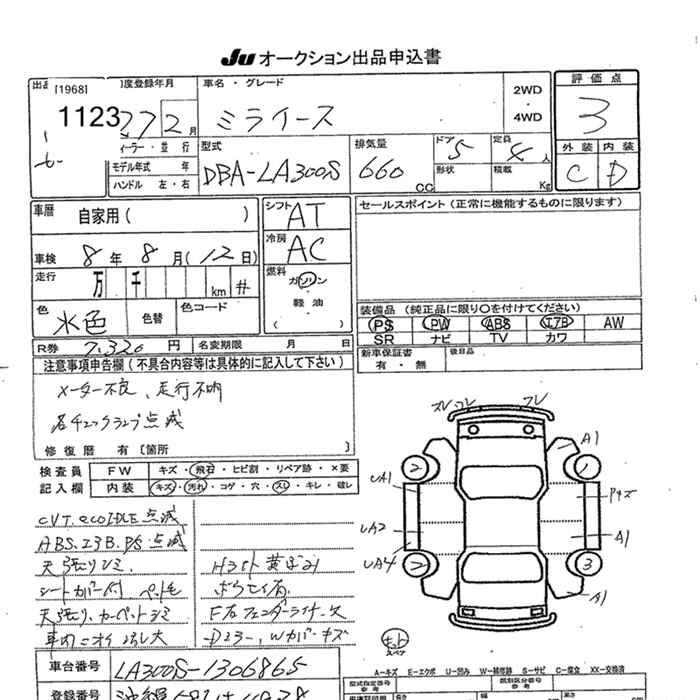 Ju オークション出品申込書
[1968]
1123
初度登録年月
27 2月
車名・グレード
ミライース
2WD
・
4WD
評価点
3
ディーラー・並行
モデル年式 年
ハンドル 左・右
型式
DBA-LA300S
排気量
660 CC
ドア
5
形状
定員
4人
積載
Kg
外装 内装
C D
車歴
自家用( )
シフト
AT
セールスポイント (正常に機能するものに限ります)
車検 8年 8月(12日)
冷房
AC
走行
万 千 km #
燃料
ガソリン
・
軽油
( )
色
水色
色替
色コード
装備品 (純正品に限り○を付けてください)
PS PW ABS エアB AW
SR ナビ TV カワ
R券 7,320円
名変期限 月 日
新車保証書
有・無
後日品
注意事項申告欄(不具合内容等は具体的に記入して下さい)
メーター不良、走行不明
各チェックランプ点滅
修復歴 有 [箇所 ]
検査員
記入欄
FW キズ・飛石・ヒビ割・リペア跡・×要
内装 キズ・汚れ・コゲ・穴・スレ・キレ・破レ
CVT. ecoIDLE 点滅
ABS.エアB.PS.点滅
天張りシミ.
シートカバー付 ペット毛
天張り.カーペットシミ
ヘッドライト黄ばみ
F右フェンダーライナー欠
Dミラー.Wカバーキズ
フレ
A1
2
1
UA1
Pキズ
UA2
A1
UA4
2
3
A1
スペア
A―キズ E―エクボ U―凹み W―補修跡 S―サビ C―腐食 XX―交換済
車台番号
LA300S-1306865
登録番号
型式指定番号
参考
類別区分番号
参考